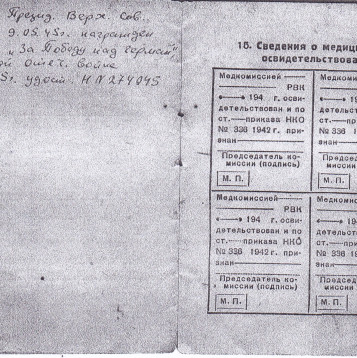 Презид. Верх. Сов.
9.05.45г. награжден
"За Победу над Герман",
ой Отеч. войне
5г. удост. Н N 274045
15. Сведения о медиц
освидетельствова
Медкомиссией
РВК
194 г. осви-
детельствован и по
ст. — приказа НКО
№ 336 1942 г. при-
знан —
Председатель ко-
миссии (подпись)
М. П.
Медкомисс
194
детельств
ст. — при
№ 336 19
знан —
Председ
миссии
М. П.
Медкомиссией
РВК
194 г. осви-
детельствован и по
ст. — приказа НКО
№ 336 1942 г. при-
знан —
Председатель ко-
миссии (подпись)
М. П.
Медкомисс
194
детельств
ст. — при
№ 336 19
знан —
Председ
миссии
М. П.